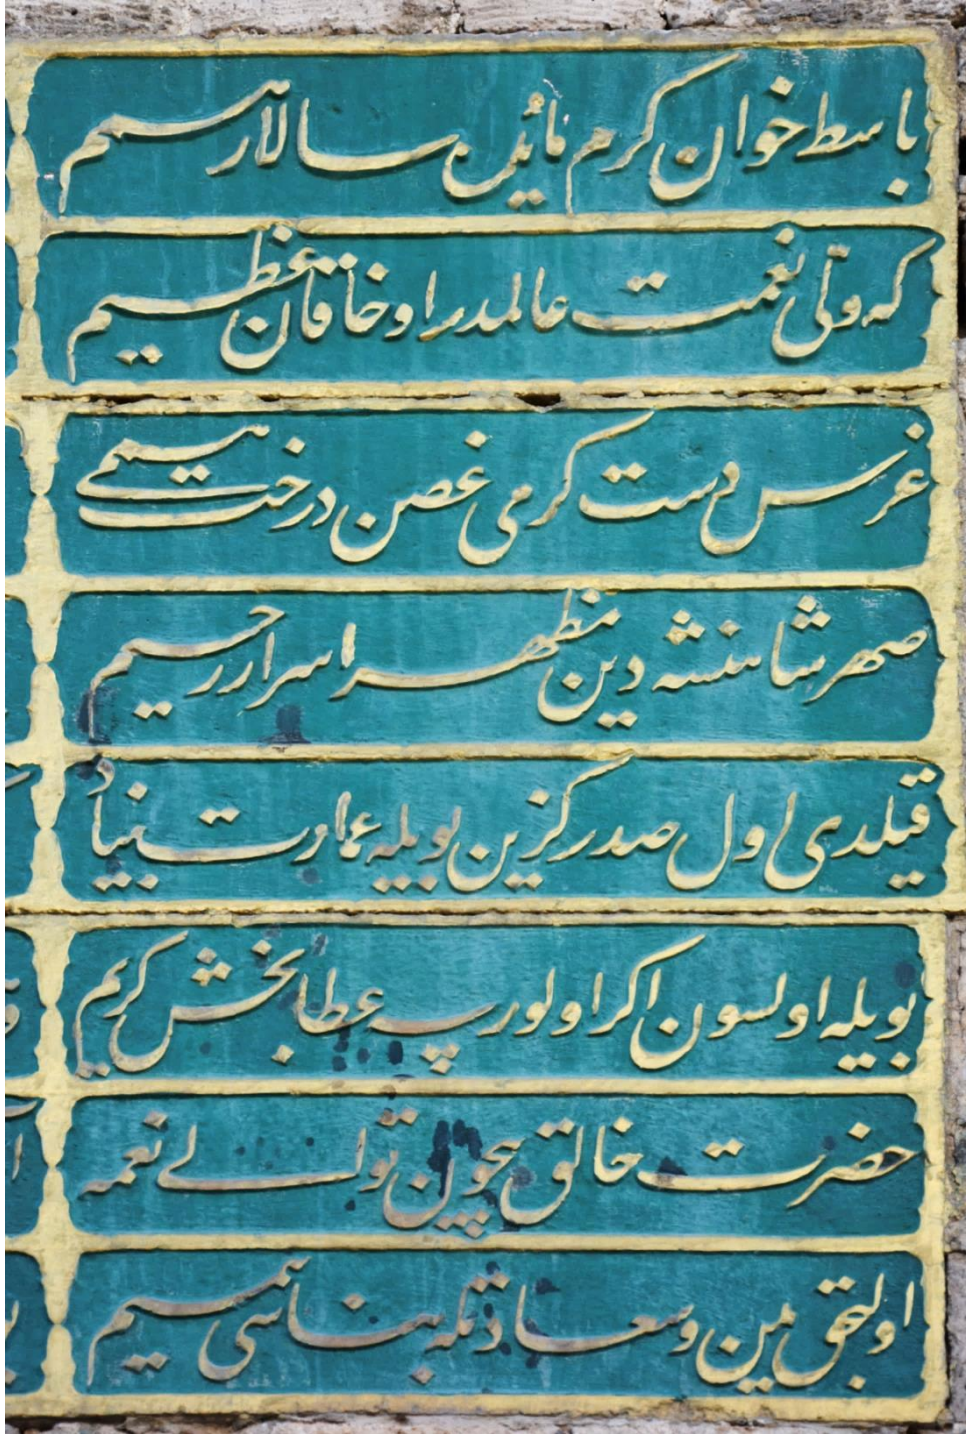 باسط خوان کرم مائدہ سالار همم
که ولی نعمت عالمدر او خاقان عظیم
غرس دست کرمی غصن درخت همتی
صهر شاهنشه دین مظهر اسرار رحیم
قیلدی اول صدر کزین بویله عمارت بنیاد
بویله اولسون اکر اولورسه عطا بخش کریم
حضرت خالق بیچون تولی نعمه
اولیجق مین وسعادتله بناسی همیم